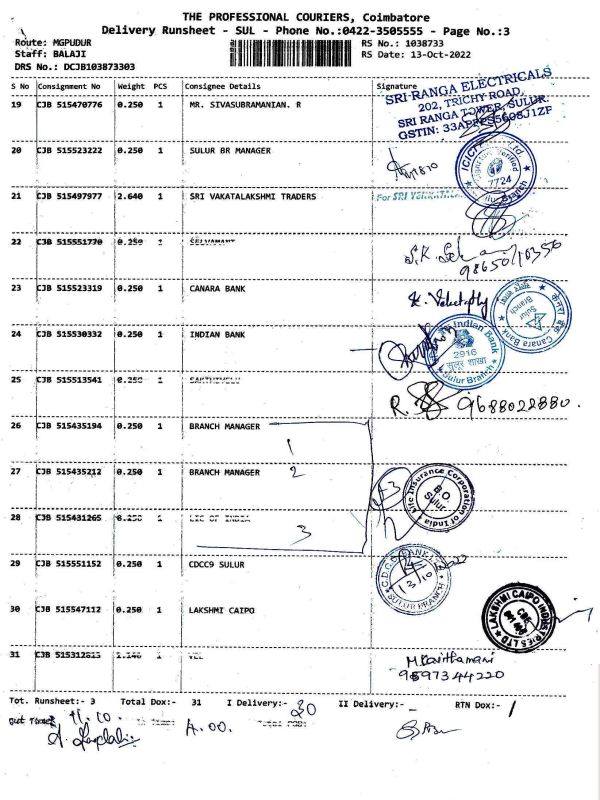 THE PROFESSIONAL COURIERS, Coimbatore
Delivery Runsheet - SUL - Phone No.:0422-3505555 - Page No.:3
Route: MGPUDUR RS No.: 1038733
Staff: BALAJI RS Date: 13-Oct-2022
DRS No.: DCJB103873303
S No Consignment No Weight PCS Consignee Details Signature
19 CJB 515470776 0.250 1 MR. SIVASUBRAMANIAN. R
SRI RANGA ELECTRICALS
202, TRICHY ROAD,
SRI RANGA TOWER, SULUR.
GSTIN:
20 CJB 515523222 0.250 1 SULUR BR MANAGER
ICICI Ltd.
7724
Branch
21 CJB 515497977 2.640 1 SRI VAKATALAKSHMI TRADERS For SRI
22 CJB 515551770 0.250 1 SELVAMANI
S.K.
23 CJB 515523319 0.250 1 CANARA BANK
Canara Bank केनरा बैंक
Sulur Branch
24 CJB 515530332 0.250 1 INDIAN BANK
Indian Bank
2916
सुलूर शाखा
Sulur Branch
25 CJB 515513541 0.250 1 SAKTHIVELU
R. 9688022880.
26 CJB 515435194 0.250 1 BRANCH MANAGER
1
27 CJB 515435212 0.250 1 BRANCH MANAGER
2
Life Insurance Corporation of India
B.O.
Sulur
28 CJB 515431265 0.250 1 LIC OF INDIA
3
29 CJB 515551152 0.250 1 CDCC9 SULUR
SULUR BRANCH
30 CJB 515547112 0.250 1 LAKSHMI CAIPO
LAKSHMI CAIPO INDUSTRIES LTD
31 CJB 515312815 1.140 1 VEL
9597344220
Tot. Runsheet:- 3 Total Dox:- 31 I Delivery:- 30 II Delivery:- - RTN Dox:- 1
Out Time: 11.10. 4.00.